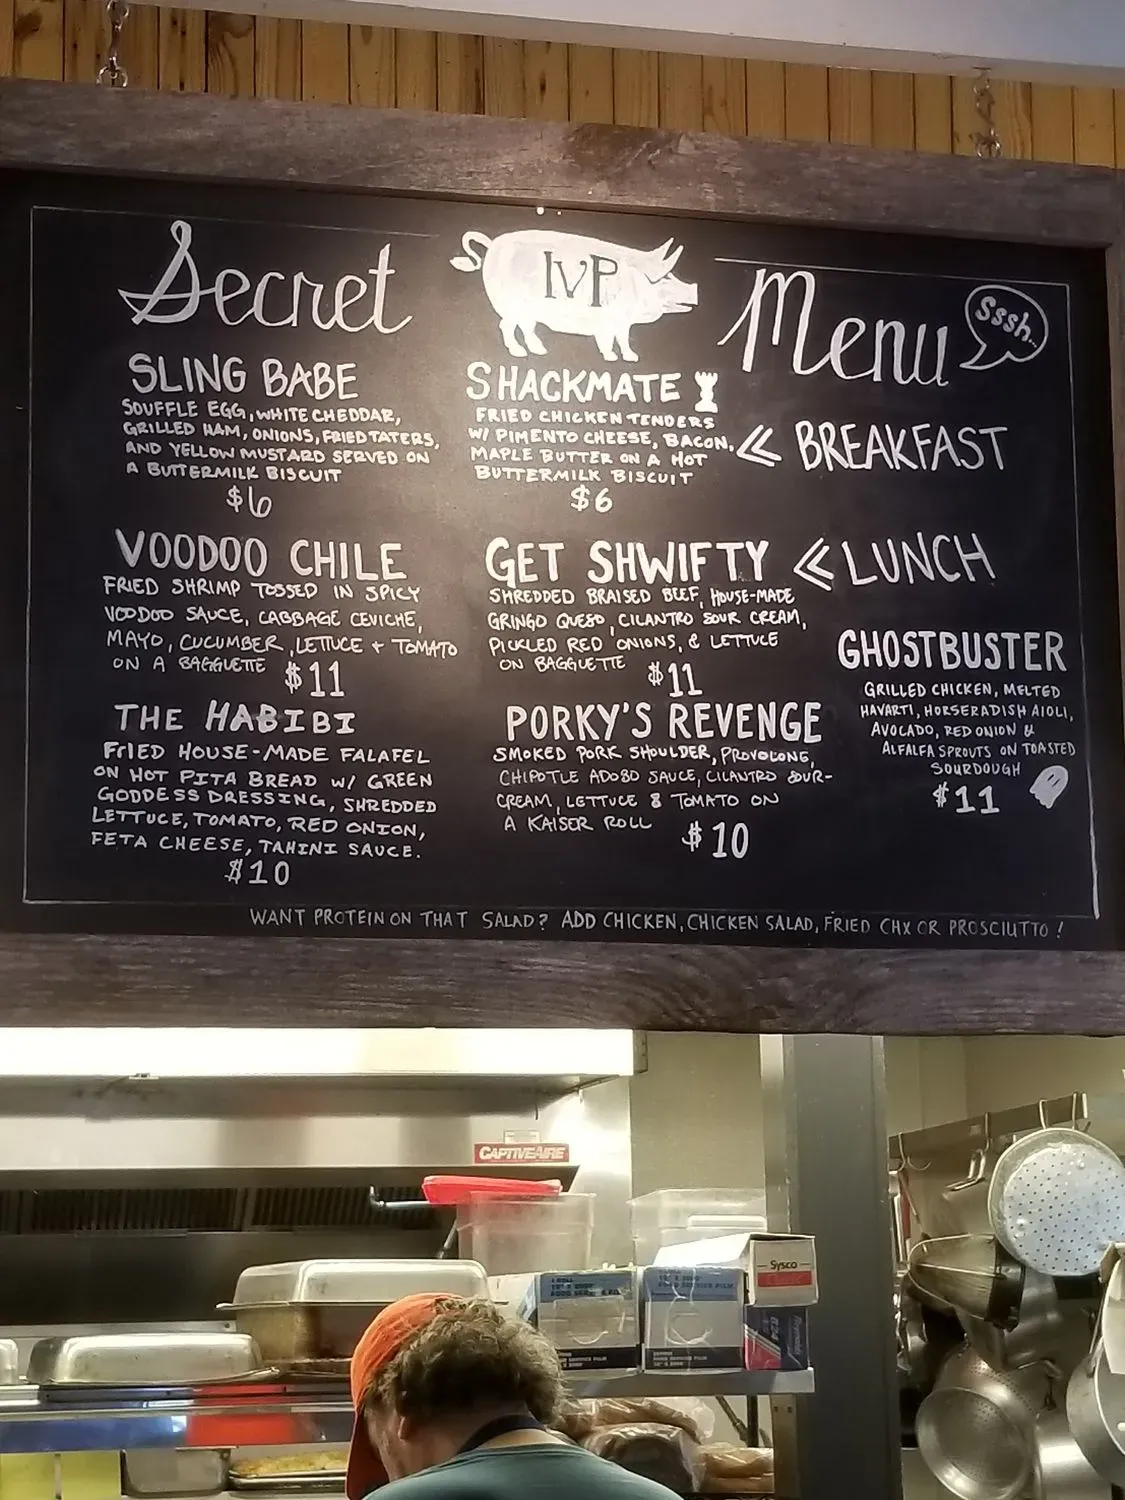 Secret
IVP
Menu
Sssh..
SLING BABE
SOUFFLE EGG, WHITE CHEDDAR,
GRILLED HAM, ONIONS, FRIED TATERS,
AND YELLOW MUSTARD SERVED ON
A BUTTERMILK BISCUIT
$6
SHACKMATE
FRIED CHICKEN TENDERS
W/ PIMENTO CHEESE, BACON,
MAPLE BUTTER ON A HOT
BUTTERMILK BISCUIT
$6
<< BREAKFAST
VOODOO CHILE
FRIED SHRIMP TOSSED IN SPICY
VOODOO SAUCE, CABBAGE CEVICHE,
MAYO, CUCUMBER, LETTUCE + TOMATO
ON A BAGGUETTE $11
GET SHWIFTY
SHREDDED BRAISED BEEF, HOUSE-MADE
GRINGO QUESO, CILANTRO SOUR CREAM,
PICKLED RED ONIONS, & LETTUCE
ON BAGGUETTE $11
<< LUNCH
THE HABIBI
FRIED HOUSE-MADE FALAFEL
ON HOT PITA BREAD W/ GREEN
GODDESS DRESSING, SHREDDED
LETTUCE, TOMATO, RED ONION,
FETA CHEESE, TAHINI SAUCE.
$10
PORKY'S REVENGE
SMOKED PORK SHOULDER, PROVOLONE,
CHIPOTLE ADOBO SAUCE, CILANTRO SOUR-
CREAM, LETTUCE & TOMATO ON
A KAISER ROLL $10
GHOSTBUSTER
GRILLED CHICKEN, MELTED
HAVARTI, HORSERADISH AIOLI,
AVOCADO, RED ONION &
ALFALFA SPROUTS ON TOASTED
SOURDOUGH
$11
WANT PROTEIN ON THAT SALAD? ADD CHICKEN, CHICKEN SALAD, FRIED CHX OR PROSCIUTTO!
CAPTIVEAIRE
Sysco
Classic